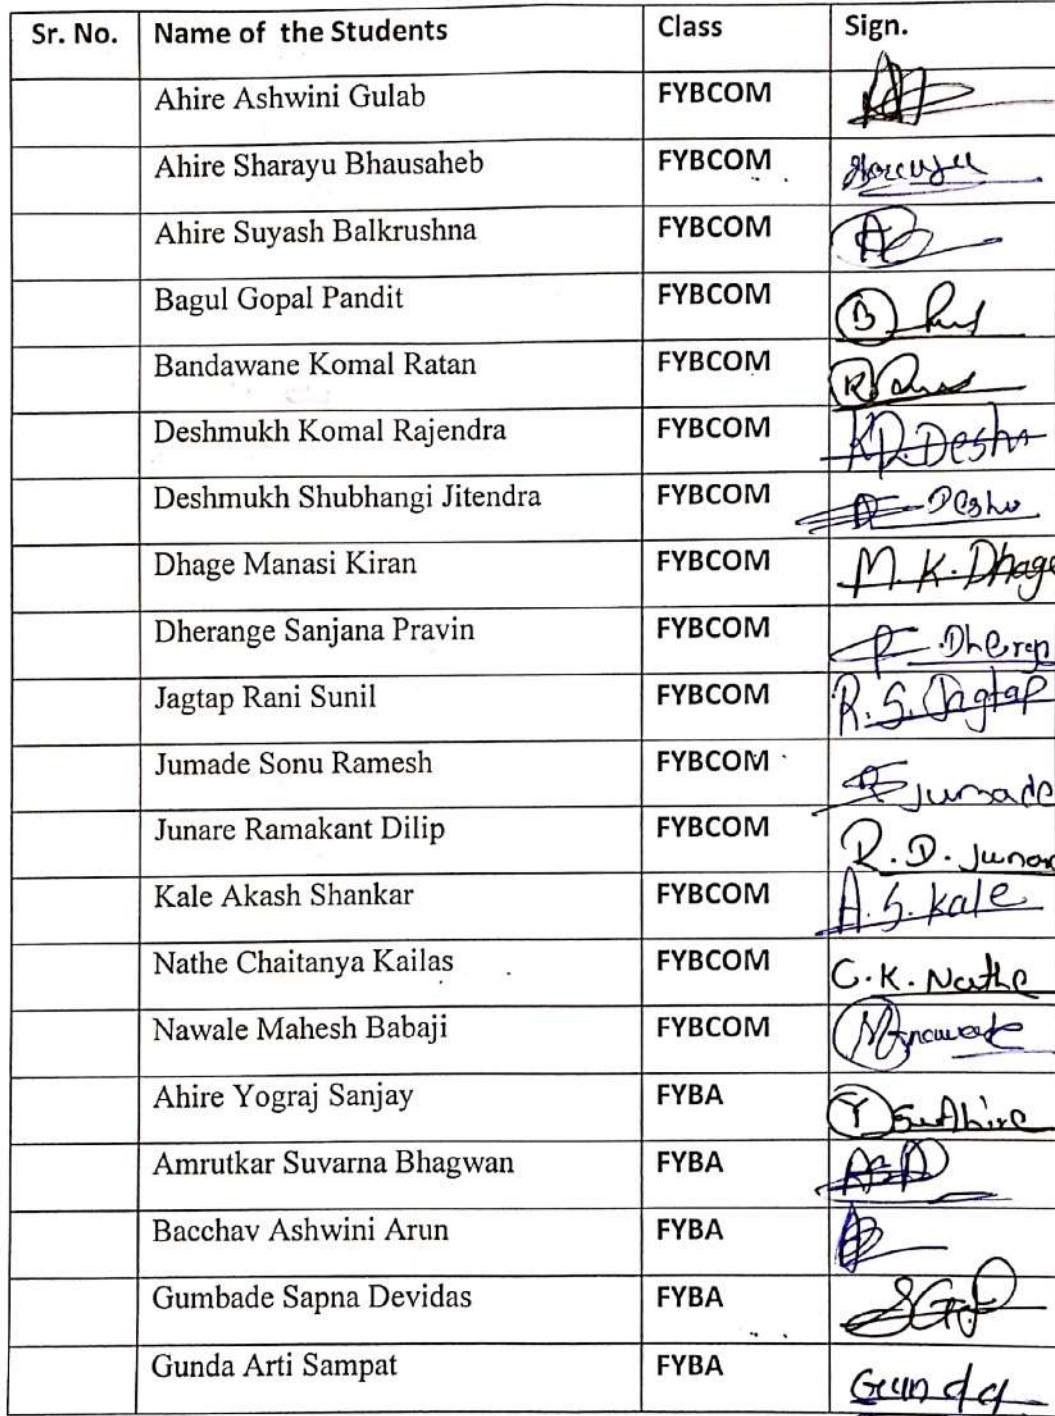 Sr. No. Name of the Students Class Sign.
Ahire Ashwini Gulab FYBCOM
Ahire Sharayu Bhausaheb FYBCOM
Ahire Suyash Balkrushna FYBCOM
Bagul Gopal Pandit FYBCOM B
Bandawane Komal Ratan FYBCOM
Deshmukh Komal Rajendra FYBCOM K.R. Desh
Deshmukh Shubhangi Jitendra FYBCOM
Dhage Manasi Kiran FYBCOM M. K. Dhage
Dherange Sanjana Pravin FYBCOM
Jagtap Rani Sunil FYBCOM R. S. Jagtap
Jumade Sonu Ramesh FYBCOM Jumade
Junare Ramakant Dilip FYBCOM R. D. Junar
Kale Akash Shankar FYBCOM A. S. Kale
Nathe Chaitanya Kailas FYBCOM C. K. Nathe
Nawale Mahesh Babaji FYBCOM
Ahire Yograj Sanjay FYBA Y S. Ahire
Amrutkar Suvarna Bhagwan FYBA
Bacchav Ashwini Arun FYBA
Gumbade Sapna Devidas FYBA
Gunda Arti Sampat FYBA Gunda